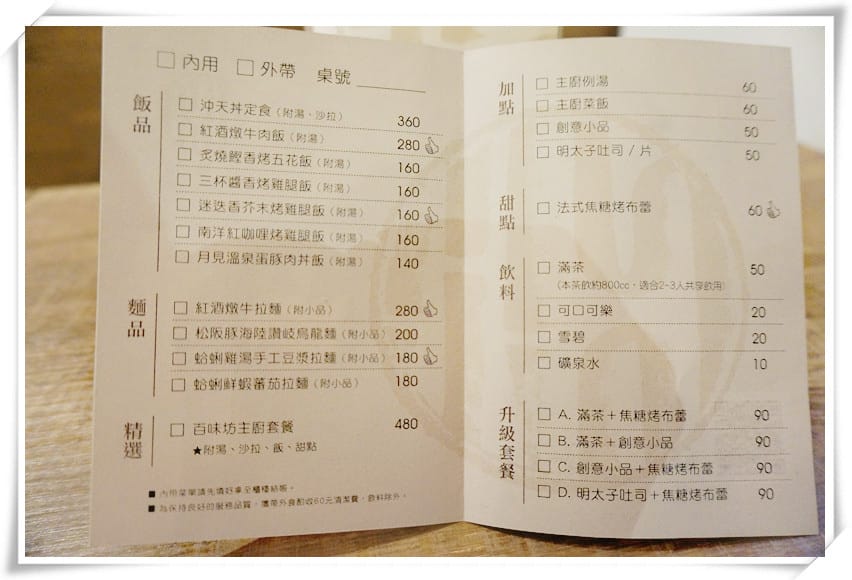 □ 內用 □ 外帶 桌號
飯品
□ 沖天丼定食（附湯、沙拉） 360
□ 紅酒燉牛肉飯（附湯） 280
□ 炙燒鰹香烤五花飯（附湯） 160
□ 三杯醬香烤雞腿飯（附湯） 160
□ 迷迭香芥末烤雞腿飯（附湯） 160
□ 南洋紅咖哩烤雞腿飯（附湯） 160
□ 月見溫泉蛋豚肉丼飯（附湯） 140
麵品
□ 紅酒燉牛拉麵（附小品） 280
□ 松阪豚海陸讚岐烏龍麵（附小品） 200
□ 蛤蜊雞湯手工豆漿拉麵（附小品） 180
□ 蛤蜊鮮蝦蕃茄拉麵（附小品） 180
精選
□ 百味坊主廚套餐 480
★附湯、沙拉、飯、甜點
■ 內用菜單請先填好拿至櫃檯結帳。
■ 為保持良好的服務品質，攜帶外食酌收60元清潔費，飲料除外。
加點
□ 主廚例湯 60
□ 主廚菜飯 60
□ 創意小品 50
□ 明太子吐司 / 片 50
甜點
□ 法式焦糖烤布蕾 60
飲料
□ 滿茶 50
（本茶飲約800cc，適合2-3人共享飲用）
□ 可口可樂 20
□ 雪碧 20
□ 礦泉水 10
升級套餐
□ A. 滿茶＋焦糖烤布蕾 90
□ B. 滿茶＋創意小品 90
□ C. 創意小品＋焦糖烤布蕾 90
□ D. 明太子吐司＋焦糖烤布蕾 90